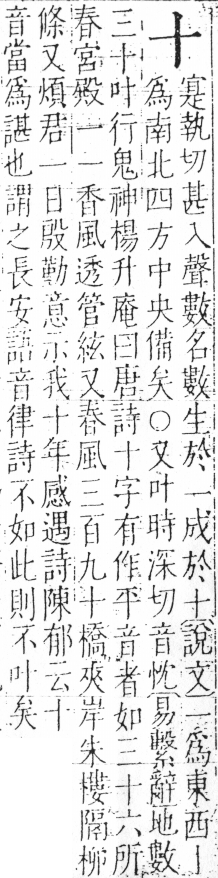 十
寔執切甚入聲數名數生於一成於十說文一爲東西丨
爲南北四方中央備矣○又叶時深切音忱易繫辭地數
三十叶行鬼神楊升庵曰唐詩十字有作平音者如三十六所
春宮殿一一香風透管絃又春風三百九十橋夾岸朱樓隔柳
條又煩君一日殷勤意示我十年感遇詩陳郁云十
音當爲諶也謂之長安語音律詩不如此則不叶矣